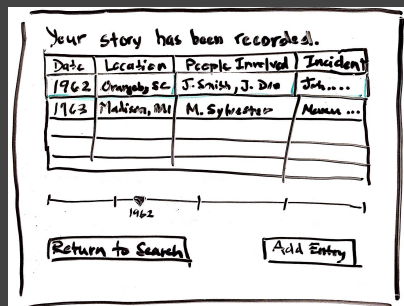 Your story has been recorded.
Date Location People Involved Incident
1962 Orangeb, SC J. Smith, J. Doe Joh....
1963 Madison, M. Sylvester ...
1962
Return to Search Add Entry